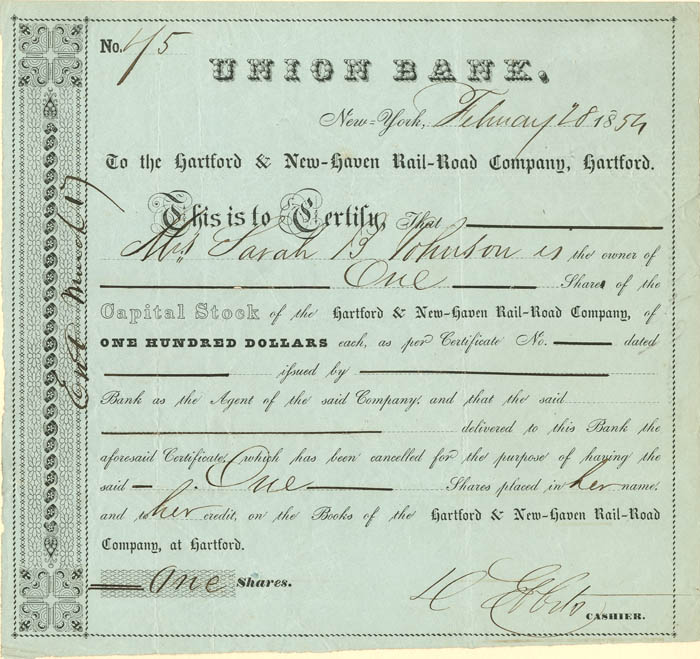 No. 45
UNION BANK.
New-York, February 28 1854
To the Hartford & New-Haven Rail-Road Company, Hartford.
This is to Certify, That
Mrs Sarah B Johnson is the owner of
One Shares of the
Capital Stock of the Hartford & New-Haven Rail-Road Company, of
ONE HUNDRED DOLLARS each, as per Certificate No. dated
issued by
Bank as the Agent of the said Company, and that the said
delivered to this Bank the
aforesaid Certificate, which has been cancelled for the purpose of having the
said One Shares placed in her name,
and to her credit, on the Books of the Hartford & New-Haven Rail-Road
Company, at Hartford.
One Shares.
CASHIER.